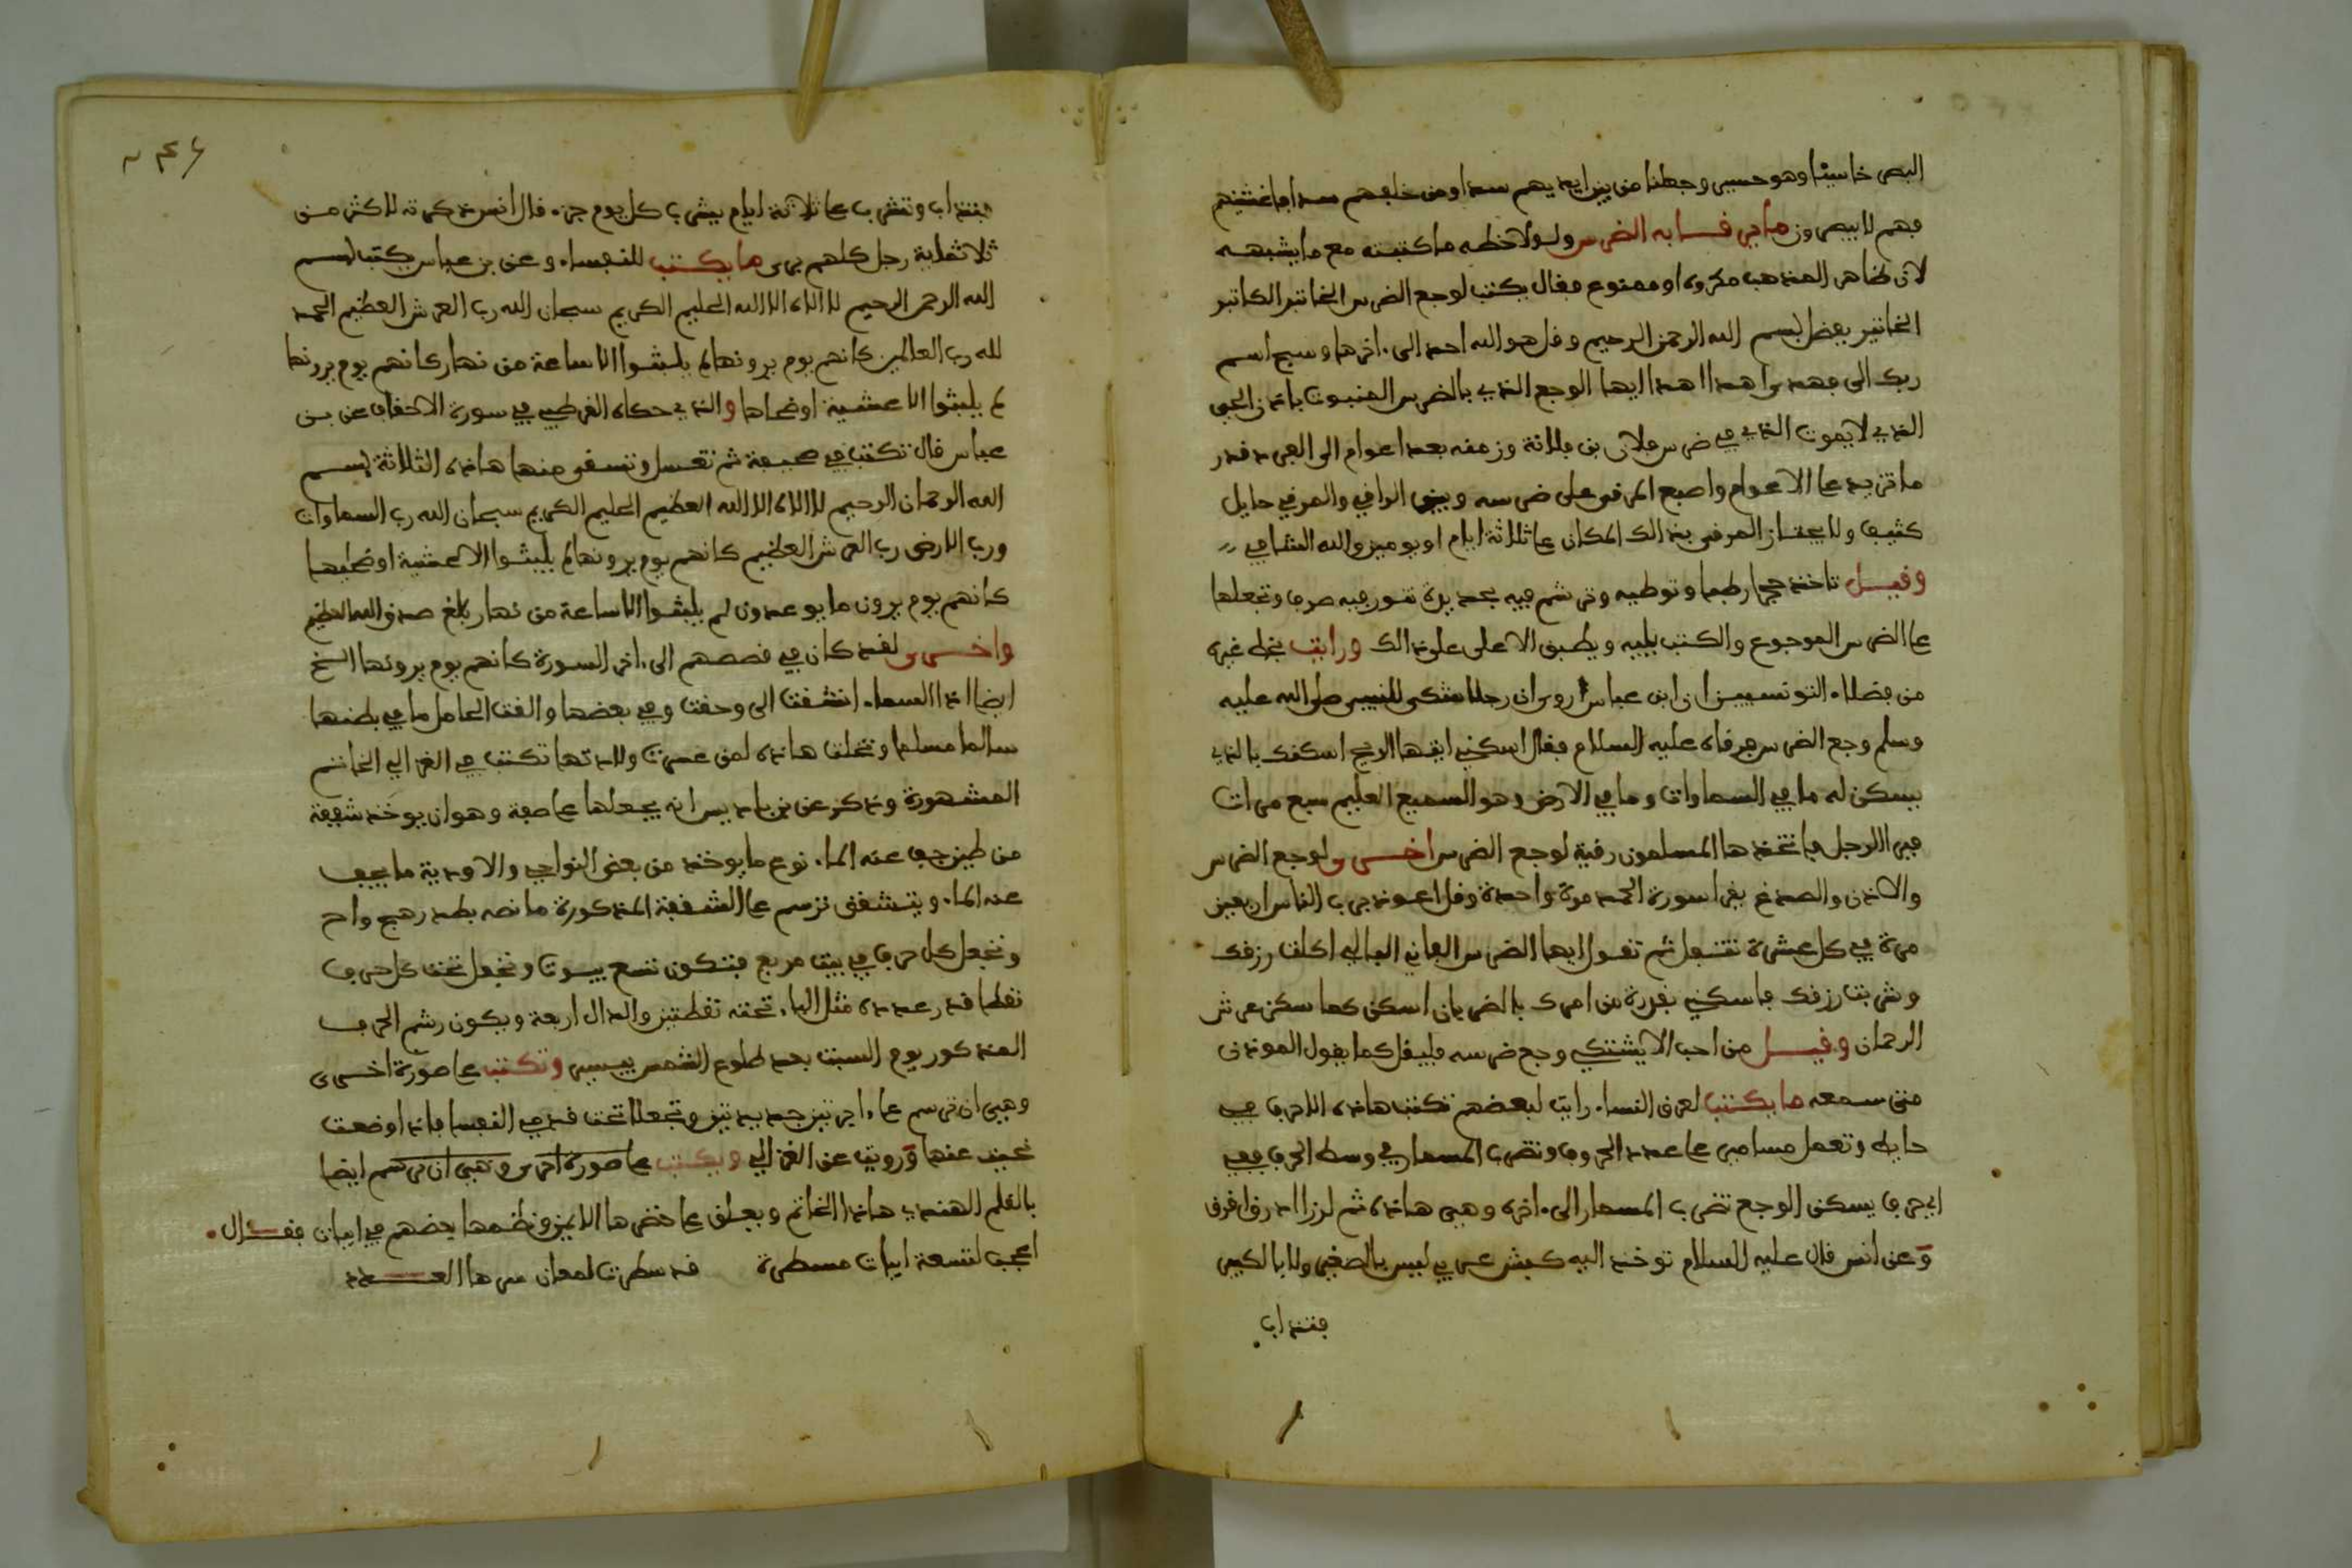 البصر خاسئا وهو حسير وجعلنا من بين ايديهم سدا ومن خلفهم سدا فاغشينهم
فهم لا يبصرون ما جر فسا به الضرس ولولا خطه ما كتبته مع ما يشبهه
لان ظاهر المذهب مكروه او ممنوع فقال يكتب لوجع الضرس الخاتير الكاتير
الخاتير بعضل بسم الله الرحمن الرحيم وقل هو الله احد الى اخرها وسبح اسم
ربك الى فهدى اهدا اهدا ايها الوجع الذي بالضرس المنبوت باذن الحي
الذي لا يموت الذي في ضرس فلان بن فلانة وزمنه بعد اعوام الى الفرد قدر
ما تريد على الاعوام واصبع المرقى على ضرسه وبين الراقي والمرقي حايل
كثيف ولا يجتاز المرقى بذالك المكان على ثلاثة ايام او يومين والله الشافي
وقيل تاخذ حجرا رطبا وتوطيه وترشم فيه بحديدة تنور فيه صرف وتجعلها
على الضرس الموجوع والكتب يليه ويطبق الاعلى على ذالك ورايت بخط غيره
من فضلاء التونسيين ان ابن عباس روى ان رجلا شكى للنبي صلى الله عليه
وسلم وجع الضرس فرقاه عليه السلام فقال اسكني ايتها الريح اسكنك بالذي
يسكن له ما في السماوات وما في الارض وهو السميع العليم سبع مرات
فبرا الرجل فاتخذها المسلمون رقية لوجع الضرس اخرى ولوجع الضرس
والاذن والصدغ يقرا سورة الحمد مرة واحدة وقل اعوذ برب الناس اربعين
مرة في كل عشرة تتفل ثم تقول ايها الضرس الفاني البالي اكلت رزقك
وشربت رزقك فاسكني بقدرة من امرك بالضربان اسكن كما سكن عرش
الرحمان وقيل من احب الا يشتكي وجع ضرسه فليقل كما يقول المؤذن
متى سمعه ما يكتب لعرق النساء رايت لبعضهم تكتب هاذه الاحرف في
حايط وتعمل مسامير على عدد الحروف وتضرب المسمار في وسط الحرف ففي
اي حرف يسكن الوجع تضرب المسمار الى اخره وهي هاذه ثم
وعن انس قال عليه السلام توخذ الية كبش عربي ليس بالصغير ولا بالكبير
فتذاب
فتذاب وتشرب على ثلاثة ايام يشرب كل يوم جزء قال انس ذكرته لاكثر من
ثلاثماية رجل كلهم برى ما يكتب للنفساء وعن بن عباس يكتب بسم
الله الرحمن الرحيم لا الاه الا الله الحليم الكريم سبحان الله رب العرش العظيم الحمد
لله رب العالمين كانهم يوم يرونها لم يلبثوا الا ساعة من نهار كانهم يوم يرونها
لم يلبثوا الا عشية او ضحاها والذي حكاه القرطبي في سورة الاحقاف عن بن
عباس قال تكتب في صحيفة ثم تغسل وتسقى منها هاذه الثلاثة بسم
الله الرحمان الرحيم لا الاه الا الله العظيم الحليم الكريم سبحان الله رب السماوات
ورب الارض رب العرش العظيم كانهم يوم يرونها لم يلبثوا الا عشية او ضحيها
كانهم يوم يرون ما يوعدون لم يلبثوا الا ساعة من نهار بلغ صدق الله العظيم
واخرى لقد كان في قصصهم الى اخر السورة كانهم يوم يرونها الخ
ايضا اذا السماء انشقت الى وحقت وفي بعضها والقت الحامل ما في بطنها
سالما مسلما وتخلت هاذه لمن عسرت ولادتها تكتب في الغزالي الخاتم
المشهورة وذكر عن بن باديس انه يجعلها على صفة وهو ان يوخذ شقفة
من طين جف عنه الماء نوع ما يوخذ من بعض النواحي والاودية ما يجف
عنه الماء ويتشقق ترسم على الشقفة المذكورة ما نصه بطد زهج واح
وتجعل كل حرف في بيت مربع فتكون تسع بيوت وتجعل تحت كل حرف
نقطا قدر عدده مثل الباء تحته نقطتين والدال اربعة ويكون رشم الحرف
المذكور يوم السبت بعد طلوع الشمس بيسير وتكتب على صورة اخرى
وهي ان ترسم على اجرتين جديدتين وتجعلا تحت قدمي النفسا فاذا وضعت
نحيت عنها ورويت عن الغزالي ويكتب على صورة اخرى وهي ان ترسم ايضا
بالقلم الهندي هاذا الخاتم ويعلق على خصرها الايمن ونظمها بعضهم في ابيات فقال
اعجب لتسعة ابيات مسطرة قد سطرت لمعان سرها العدد